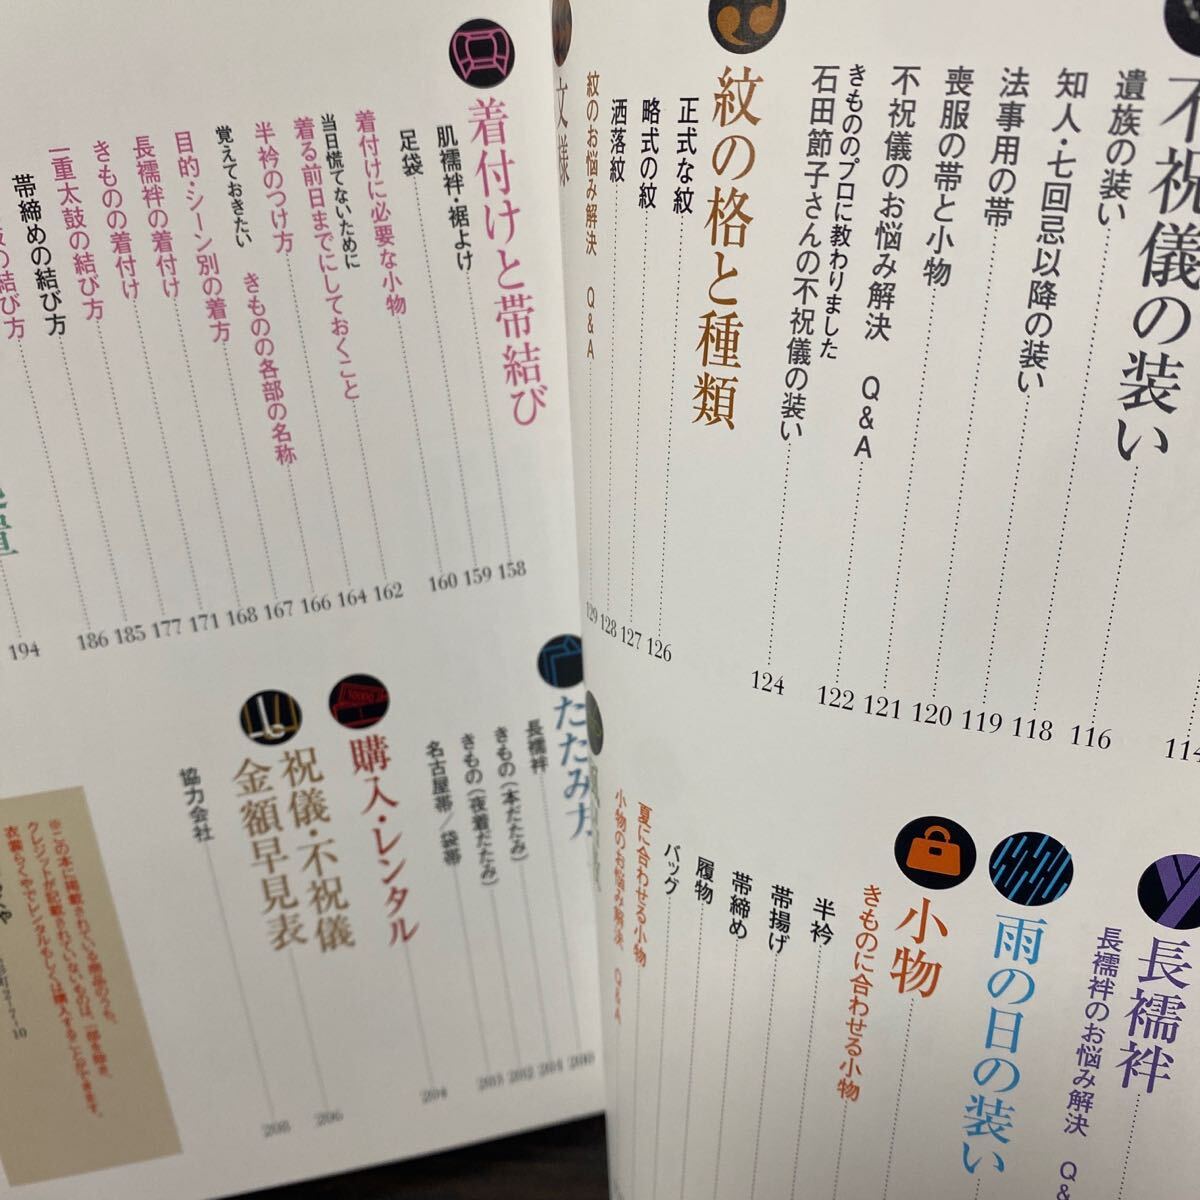 不祝儀の装い 114
遺族の装い 116
知人・七回忌以降の装い 118
法事用の帯 119
喪服の帯と小物 120
不祝儀のお悩み解決 Q&A 121
きもののプロに教わりました 122
石田節子さんの不祝儀の装い 124
紋の格と種類
正式な紋 126
略式の紋 127
洒落紋 128
紋のお悩み解決 Q&A 129
文様
長襦袢
長襦袢のお悩み解決
雨の日の装い
小物
きものに合わせる小物
半衿
帯揚げ
帯締め
履物
バッグ
夏に合わせる小物
小物のお悩み解決 Q&A
着付けと帯結び 158
肌襦袢・裾よけ 159
足袋 160
着付けに必要な小物 162
当日慌てないために
着る前日までにしておくこと 164
半衿のつけ方 166
きものの各部の名称 167
覚えておきたい
目的・シーン別の着方 168
長襦袢の着付け 171
きものの着付け 177
一重太鼓の結び方 185
帯締めの結び方 186
の結び方
194
たたみ方 200
長襦袢 201
きもの（本だたみ） 202
きもの（夜着だたみ） 203
名古屋帯／袋帯
購入・レンタル 204
祝儀・不祝儀
金額早見表 206
協力会社 208
※この本に掲載されている商品のうち、
クレジットが記載されていないものは、一部を除き、
衣裳らくやでレンタルもしくは購入することができます。